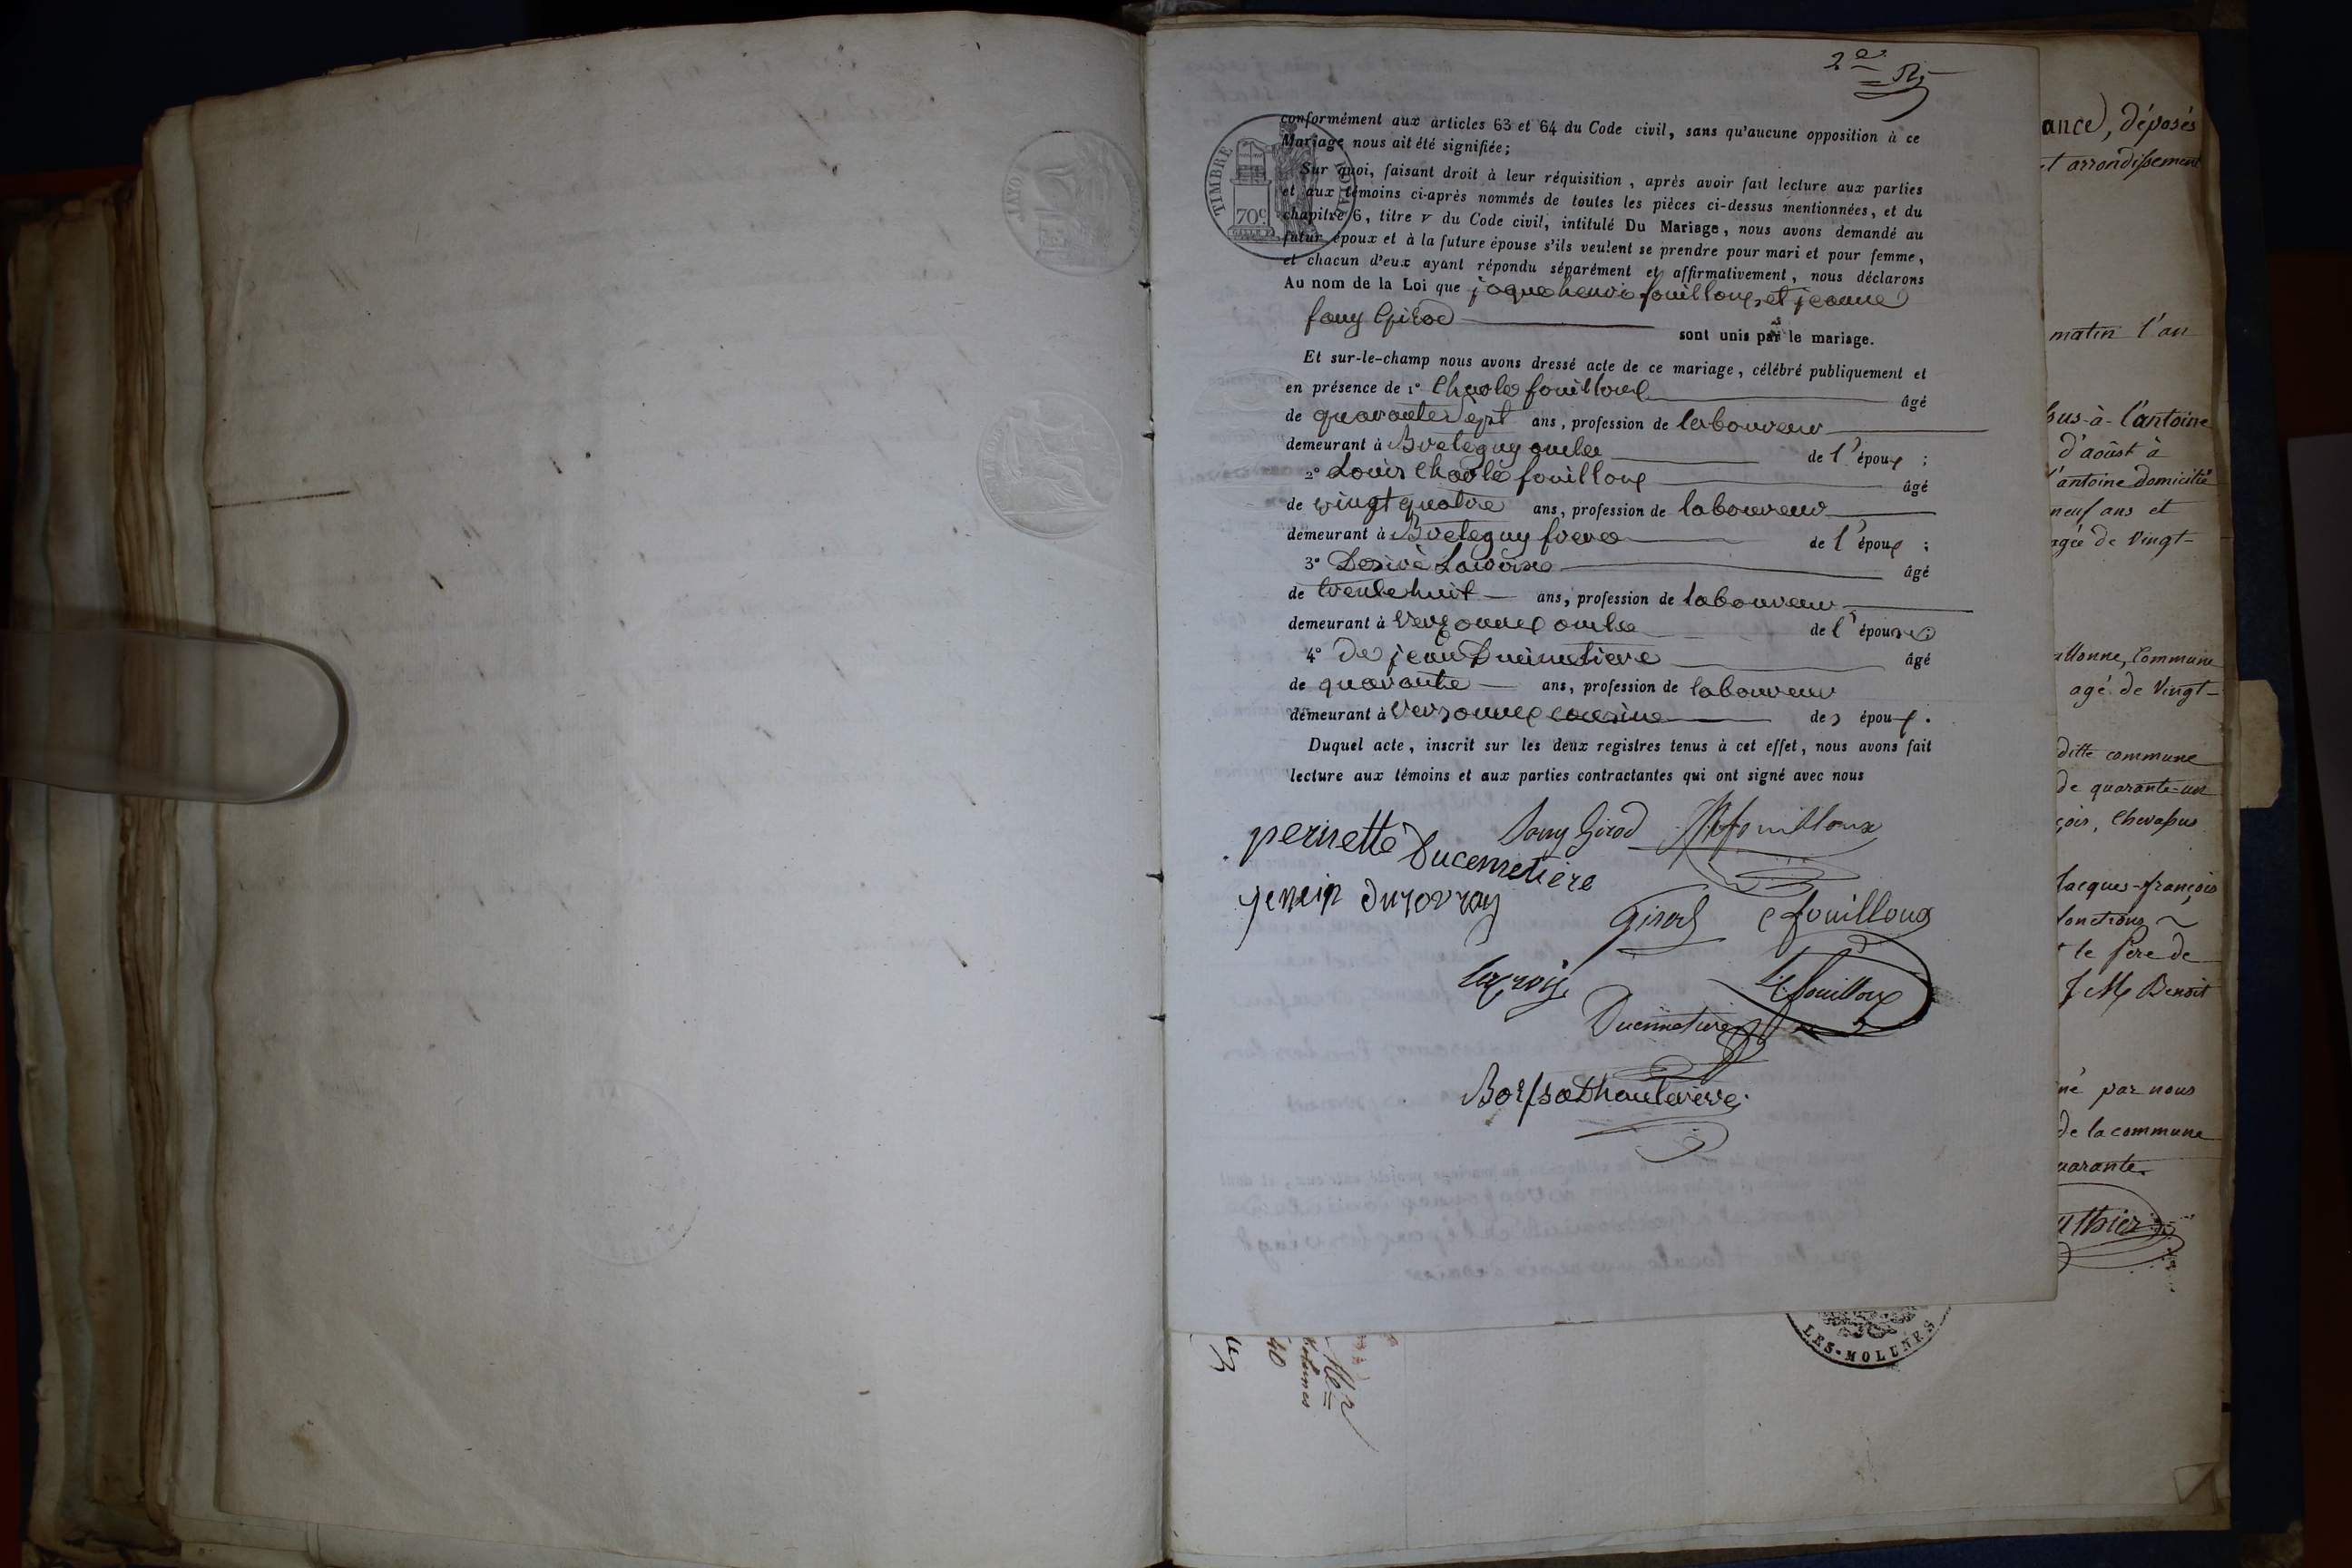 2e
conformément aux articles 63 et 64 du Code civil, sans qu'aucune opposition à ce
Mariage nous ait été signifiée;
Sur quoi, faisant droit à leur réquisition, après avoir fait lecture aux parties
et aux témoins ci-après nommés de toutes les pièces ci-dessus mentionnées, et du
chapitre 6, titre v du Code civil, intitulé Du Mariage, nous avons demandé au
futur époux et à la future épouse s'ils veulent se prendre pour mari et pour femme,
et chacun d'eux ayant répondu séparément et affirmativement, nous déclarons
Au nom de la Loi que jaque henri fouilloux et jeanne
fany Girod sont unis par le mariage.
Et sur-le-champ nous avons dressé acte de ce mariage, célébré publiquement et
en présence de 1° Charles fouilloux âgé
de quarante sept ans, profession de laboureur
demeurant à Bretegny oncle de l'époux ;
2° Louis Charle fouilloux âgé
de vingt quatre ans, profession de laboureur
demeurant à Bretegny frere de l'époux ;
3° Desiré Lacroix âgé
de trente huit ans, profession de laboureur
demeurant à Versonnex oncle de l'épouse
4° De jean Ducimetiere âgé
de quarante ans, profession de laboureur
demeurant à Versonnex cousin des époux.
Duquel acte, inscrit sur les deux registres tenus à cet effet, nous avons fait
lecture aux témoins et aux parties contractantes qui ont signé avec nous
fany Girod fouilloux
pernette Ducemetiere
Girod C fouilloux
Lacroix
L C fouilloux
Ducimetiere
TIMBRE ROYAL
70c
ance), déposés
et arrondissement
matin l'an
d'août à
l'antoine domicilié
neuf ans et
agée de Vingt-
Commune
agé de Vingt-
ditte commune
de quarante-un
Jacques-françois
fonctions
le père de
J M Benoit
né par nous
de la commune
uarante.
uthier
LES-MOLUNES
40